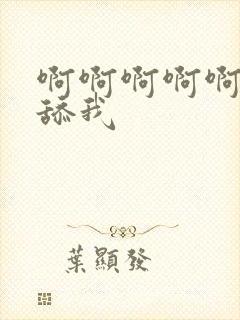 啊啊啊啊啊
舔我
葉顯發